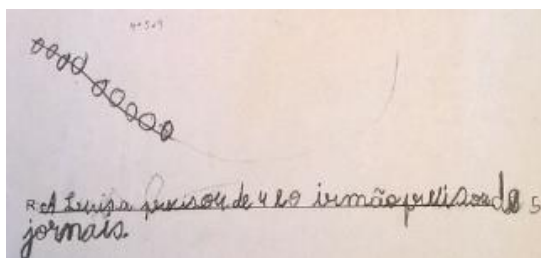 4+5=9
R: A Luisa precisou de 4 e o irmão precisou de 5
jornais.